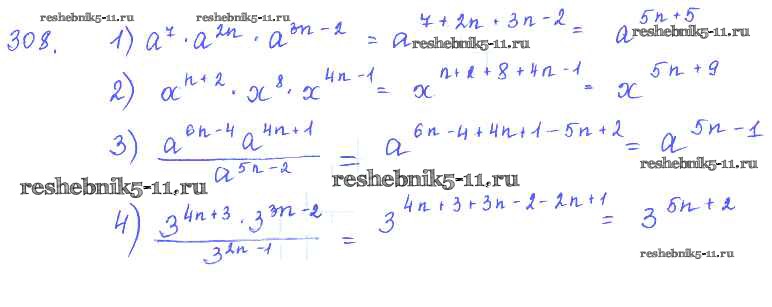 reshebnik5-11.ru reshebnik5-11.ru
308. 1) a^7 · a^{2n} · a^{3n-2} = a^{7+2n+3n-2} = a^{5n+5}
reshebnik5-11.ru reshebnik5-11.ru
2) x^{n+2} · x^8 · x^{4n-1} = x^{n+2+8+4n-1} = x^{5n+9}
3) \frac{a^{6n-4} a^{4n+1}}{a^{5n-2}} = a^{6n-4+4n+1-5n+2} = a^{5n-1}
reshebnik5-11.ru reshebnik5-11.ru reshebnik5-11.ru
4) \frac{3^{4n+3} · 3^{3n-2}}{3^{2n-1}} = 3^{4n+3+3n-2-2n+1} = 3^{5n+2}
reshebnik5-11.ru